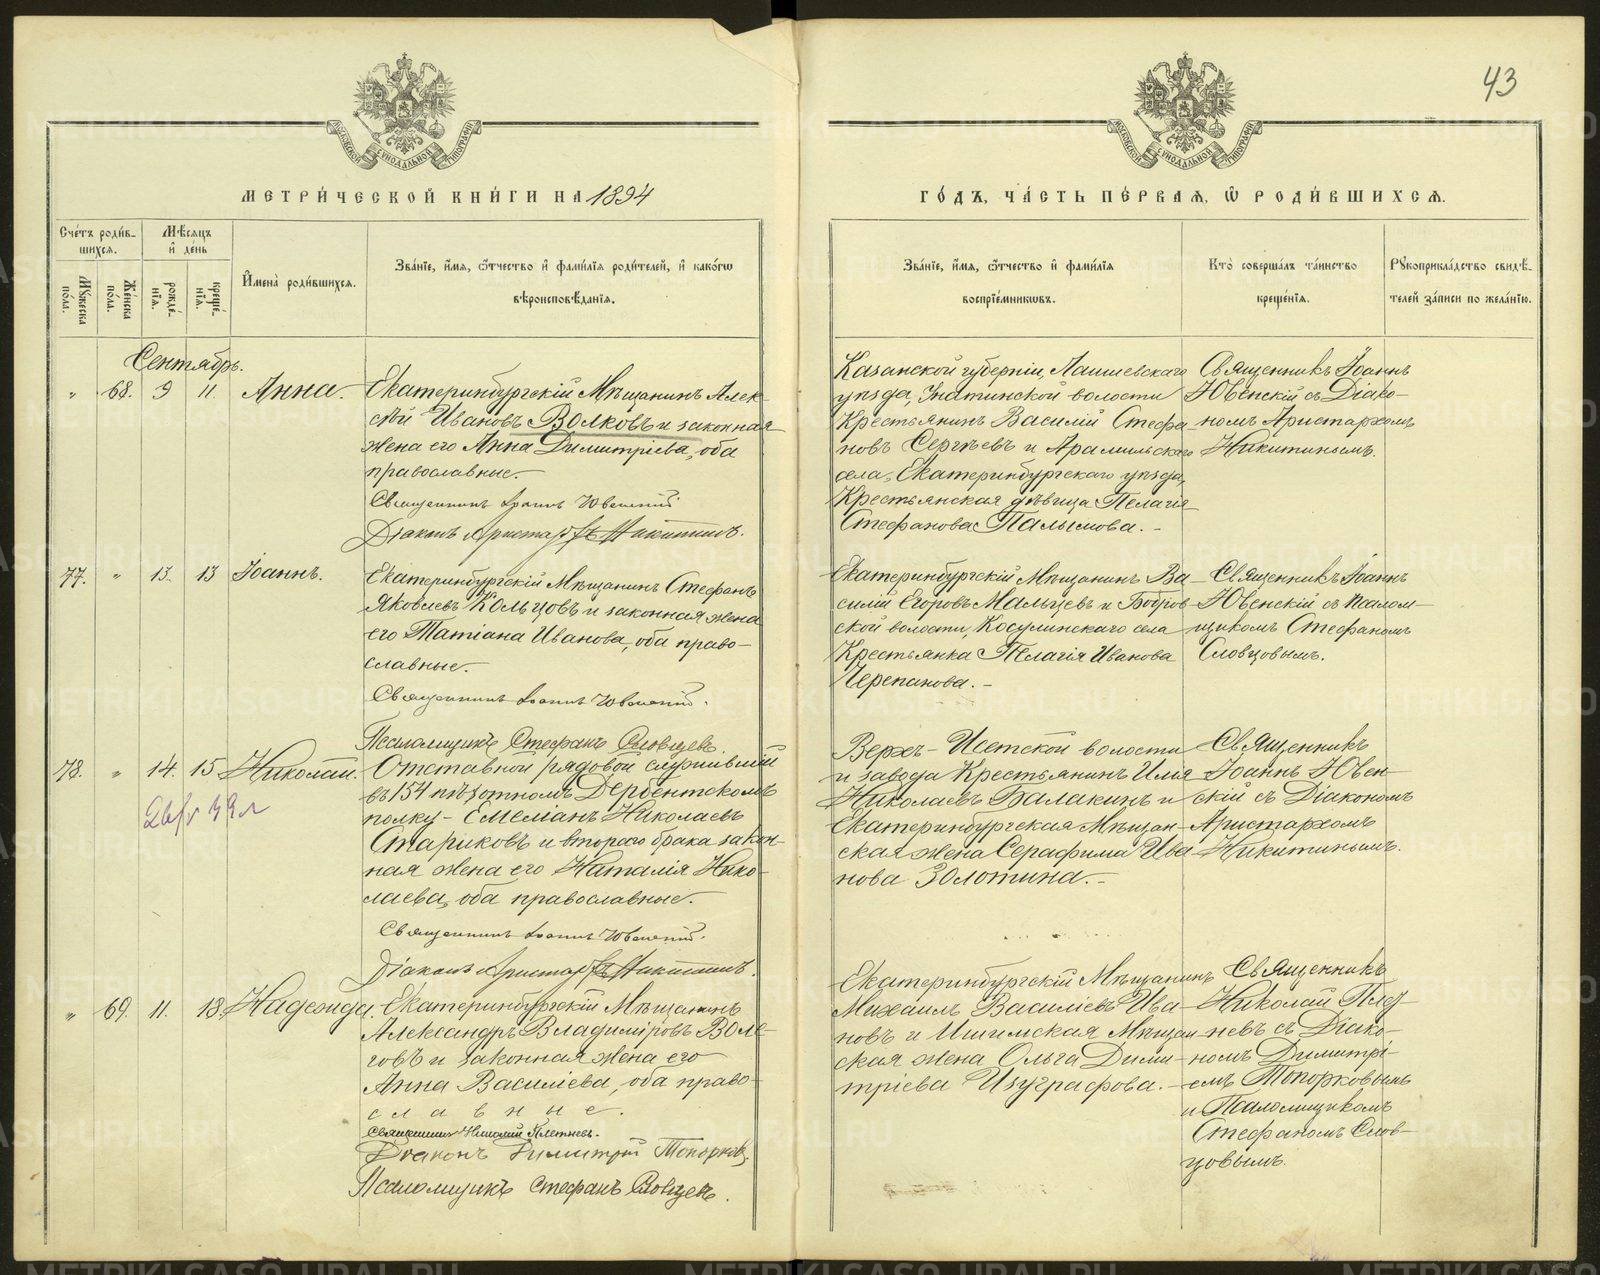 43
МОСКОВСКОЙ СѴНОДАЛЬНОЙ ТИПОГРАФІИ
МОСКОВСКОЙ СѴНОДАЛЬНОЙ ТИПОГРАФІИ
МЕТРИ́ЧЕСКОЙ КНИ́ГИ НА 1894
ГО́ДЪ, ЧА́СТЬ ПЕ́РВАЯ, Ѡ РОДИ́ВШИХСЯ.
Сче́тъ роди́в-
шихся.
Мѣ́сяцъ
и҆ де́нь
Мꙋ́жеска
по́ла.
Же́нска
по́ла.
рожде́-
нїя.
креще́-
нїя.
И҆мена̀ роди́вшихся.
Зва́нїе, и҆́мя, ѻ҆́тчество и҆ фами́лїя роди́телей, и҆ како́гѡ
вѣроисповѣ́данїя.
Зва́нїе, и҆́мя, ѻ҆́тчество и҆ фами́лїя
воспрїе́мниковъ.
Кто̀ соверша́лъ та́инство
креще́нїя.
Рꙋкоприкла́дство свидѣ́-
телей за́писи по жела́нїю.
Сентябрь.
" 68. 9 11 Анна.
Екатеринбургскій Мѣщанинъ Алек-
сѣй Ивановъ Волковъ и законная
жена его Анна Димитріева, оба
православные.
Священникъ Іоаннъ Ювенскій
Діаконъ Аристархъ Никитинъ.
Казанской губерніи, Лаишевскаго
уѣзда, волости
Крестьянинъ Василій Стефа
новъ Сергѣевъ и Арамильскаго
села, Екатеринбургскаго уѣзда,
Крестьянская дѣвица Пелагія
Стефанова Палымова. -
Священникъ Іоаннъ
Ювенскій съ Діако-
номъ Аристархомъ
Никитинымъ.
77. " 13. 13 Іоаннъ.
Екатеринбургскій Мѣщанинъ Стефанъ
Яковлевъ Кольцовъ и законная жена
его Татіана Иванова, оба право-
славные.
Священникъ Іоаннъ Ювенскій.
Псаломщикъ Стефанъ Словцевъ.
Екатеринбургскій Мѣщанинъ Ва-
силій Егоровъ Мальцевъ и Бобров
ской волости, Косулинскаго села
Крестьянка Пелагія Иванова
Черепанова. -
Священникъ Іоаннъ
Ювенскій съ Псалом-
щикомъ Стефаномъ
Словцовымъ.
78. " 14. 15 Николай.
39 л
Отставной рядовой служившій
въ 154 пѣхотномъ Дербентскомъ
полку - Емеліанъ Николаевъ
Стариковъ и втораго брака закон-
ная жена его Наталія Нико-
лаева, оба православные.
Священникъ Іоаннъ Ювенскій.
Діаконъ Аристархъ Никитинъ.
Верхъ-Исетской волости
и завода Крестьянинъ Илія
Николаевъ Балакинъ и
Екатеринбургская Мѣщан-
ская жена Серафима Ива-
нова Золотина. -
Священникъ
Іоаннъ Ювен-
скій съ Діакономъ
Аристархомъ
Никитинымъ.
" 69. 11. 18. Надежда.
Екатеринбургскій Мѣщанинъ
Александръ Владиміровъ Воле-
говъ и законная жена его
Анна Василіева, оба право-
славные.
Священникъ Николай Плетневъ.
Діаконъ Димитрій Топорковъ.
Псаломщикъ Стефанъ Словцевъ.
Екатеринбургскій Мѣщанинъ
Михаилъ Василіевъ Ива-
новъ и Ишимская Мѣщан
ская жена Ольга Дими-
тріева Изуграфова. -
Священникъ
Николай Плет
невъ съ Діако-
номъ Димитрі-
емъ Топорковымъ
и Псаломщикомъ
Стефаномъ Слов-
цовымъ.